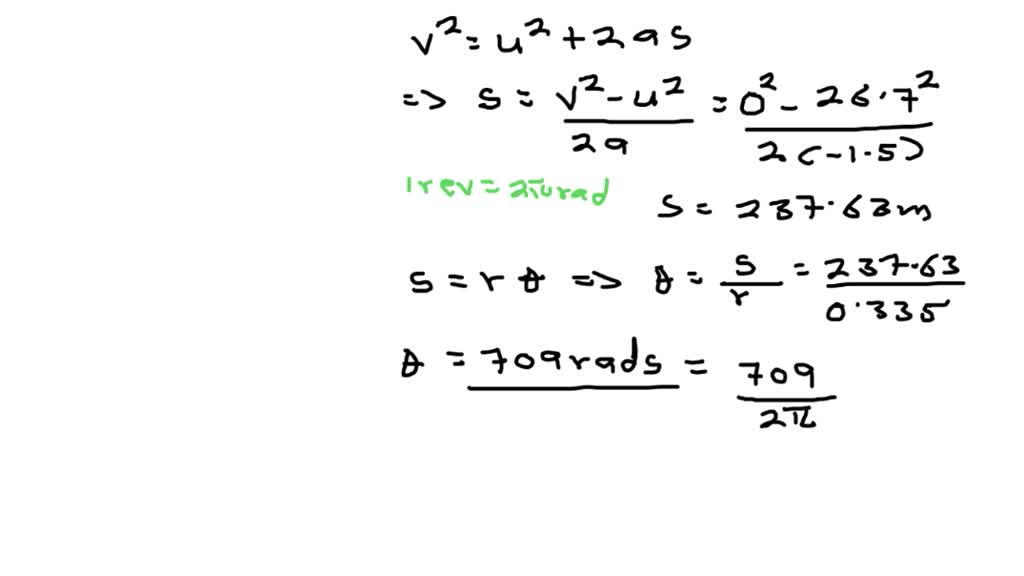 v² = u² + 2as
=> s = (v² - u²)/2a = (0² - 26.7²)/2(-1.5)
1rev = 2π rad
s = 237.63m
s = rθ => θ = s/r = 237.63/0.335
θ = 709rads = 709/2π